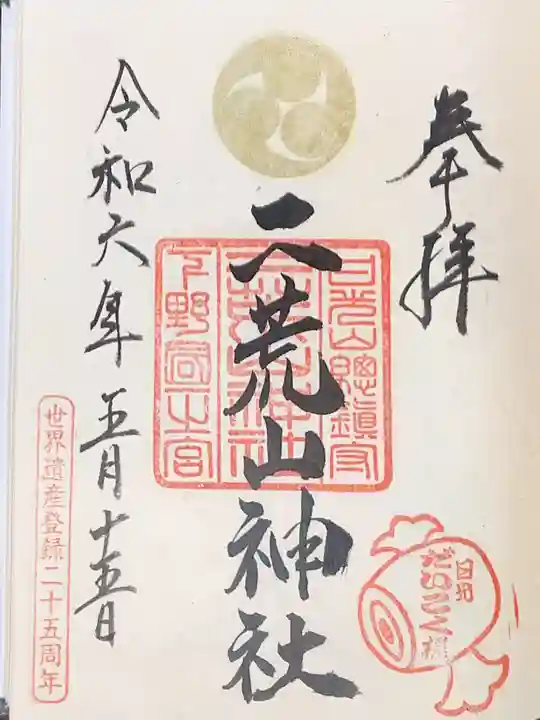 奉拝
日光山總鎮守
二荒山神社
下野國一之宮
二荒山神社
日光
だいこく様
令和六年五月十五日
世界遺産登録二十五周年